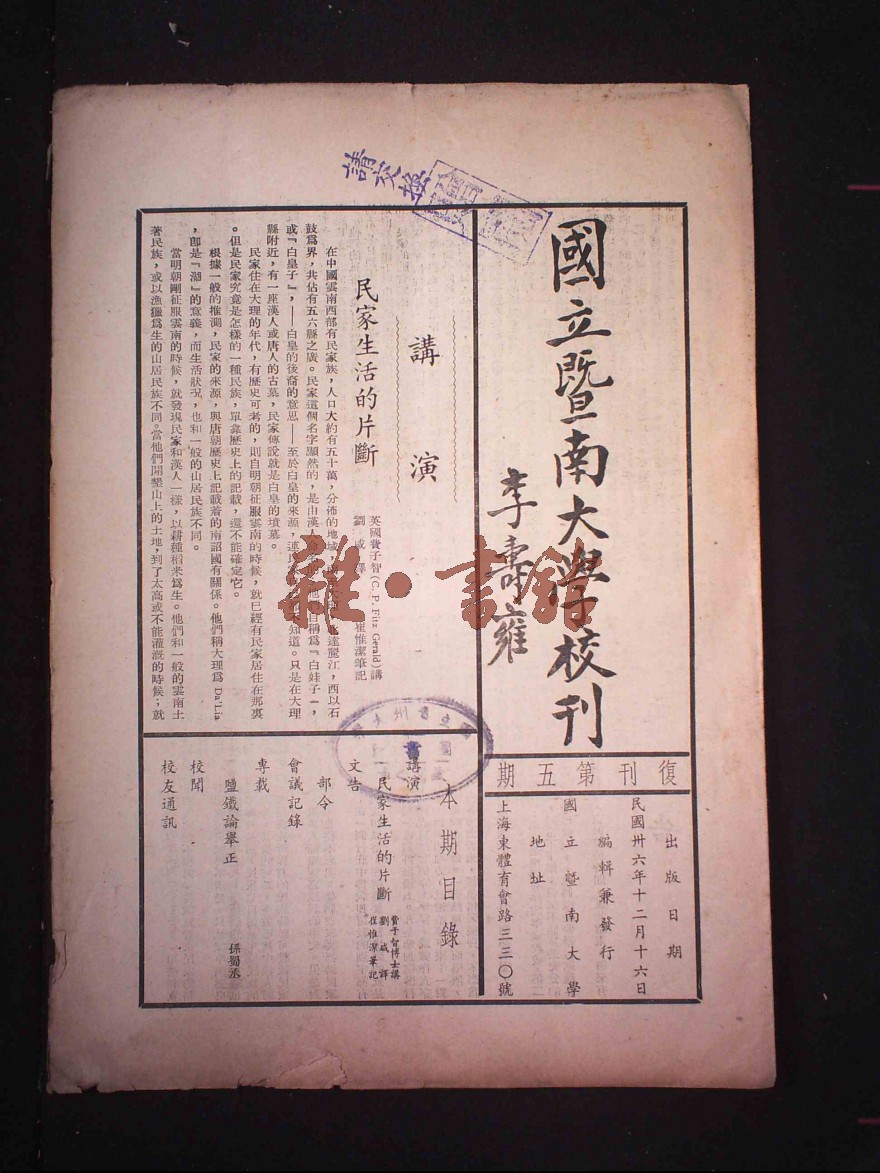 請交換
國立暨南大學校刊
李壽雍
復刊第五期
出版日期
民國卅六年十二月十六日
編輯兼發行
國立暨南大學
地址
上海東體育會路三三〇號
講演
民家生活的片斷
英國費子智(C. P. Fitz Gerald)講
劉咸譯
崔惟潔筆記
在中國雲南西部有民家族，人口大約有五十萬，分佈的地域，
達麗江，西以石
鼓爲界，共佔有五六縣之廣。民家這個名字顯然的，是由漢人
他們自稱爲『白娃子』，
或『白皇子』，——白皇的後裔的意思——至於白皇的來源，連民家
不知道。只是在大理
縣附近，有一座漢人或唐人的古墓，民家傳說就是白皇的墳墓。
民家住在大理的年代，有歷史可考的，則自明朝征服雲南的時候，就已經有民家居住在那裏
。但是民家究竟是怎樣的一種民族，單靠歷史上的記載，還不能確定它。
根據一般的推測，民家的來源，與唐朝歷史上記載着的南詔國有關係。他們稱大理爲 Da'Lia
，卽是『湖』的意義，而生活狀況，也和一般的山居民族不同。
當明朝剛征服雲南的時候，就發現民家和漢人一樣，以耕種稻米爲生。他們和一般的雲南土
著民族，或以漁獵爲生的山居民族不同。當他們開墾山上的土地，到了太高或不能灌漑的時候；就
本期目錄
講演
民家生活的片斷
費子智博士講
劉咸譯
崔惟潔筆記
文告
部令
會議記錄
專載
鹽鐵論舉正
孫蜀丞
校聞
校友通訊
雜·書館